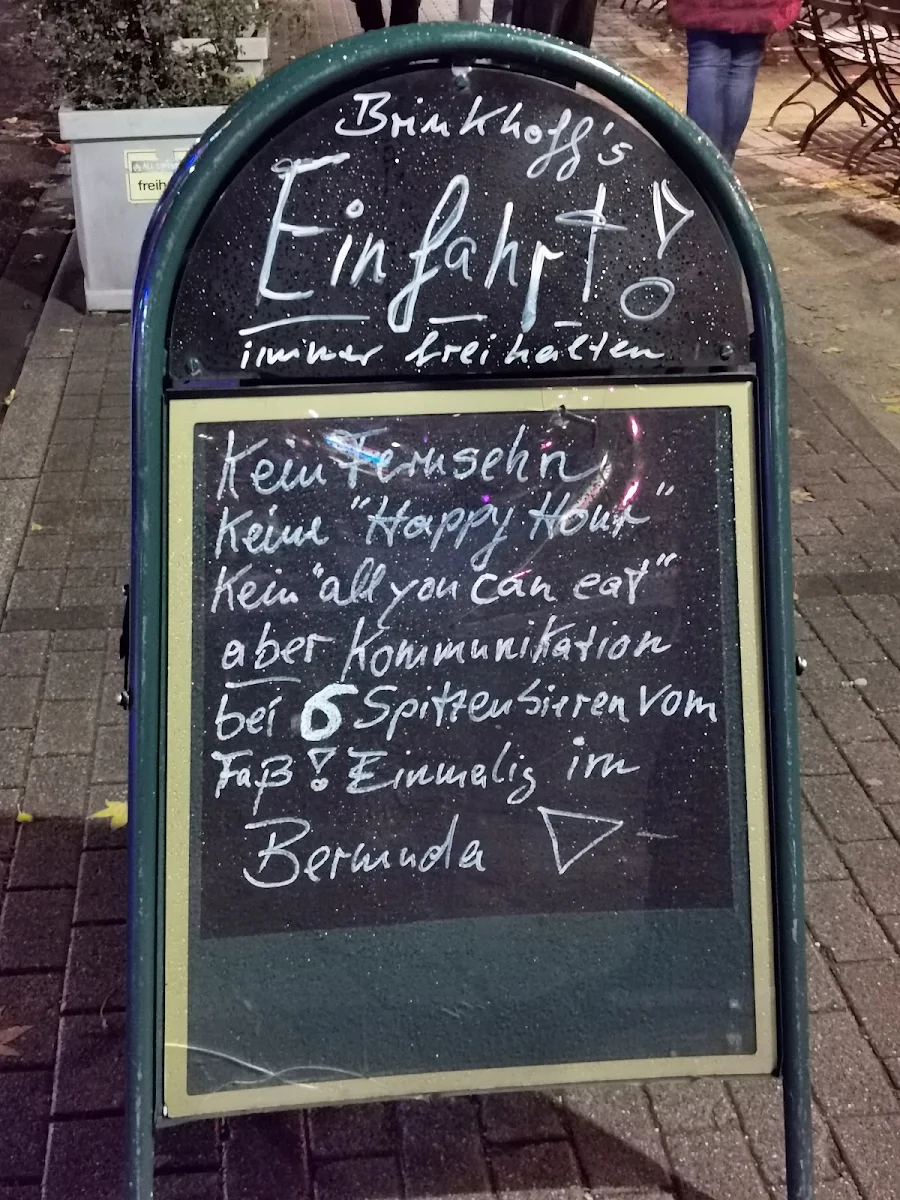 Brinkhoff's
Einfahrt!
immer freihalten
Kein Fernsehn
Keine "Happy Hour"
Kein "all you can eat"
aber Kommunikation
bei 6 Spitzenbieren vom
Faß! Einmalig im
Bermuda
freih